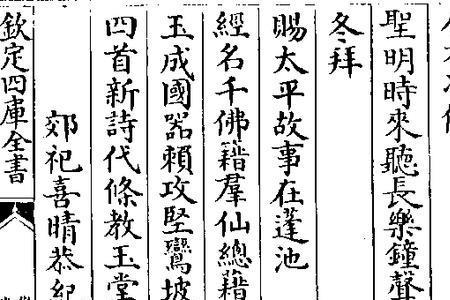 聖明時來聽長樂鐘聲
冬拜
賜太平故事在蓬池
經名千佛籍羣仙總藉
玉成國器賴攻堅鸞坡
四首新詩代條教玉堂
郊祀喜晴恭紀
欽定四庫全書